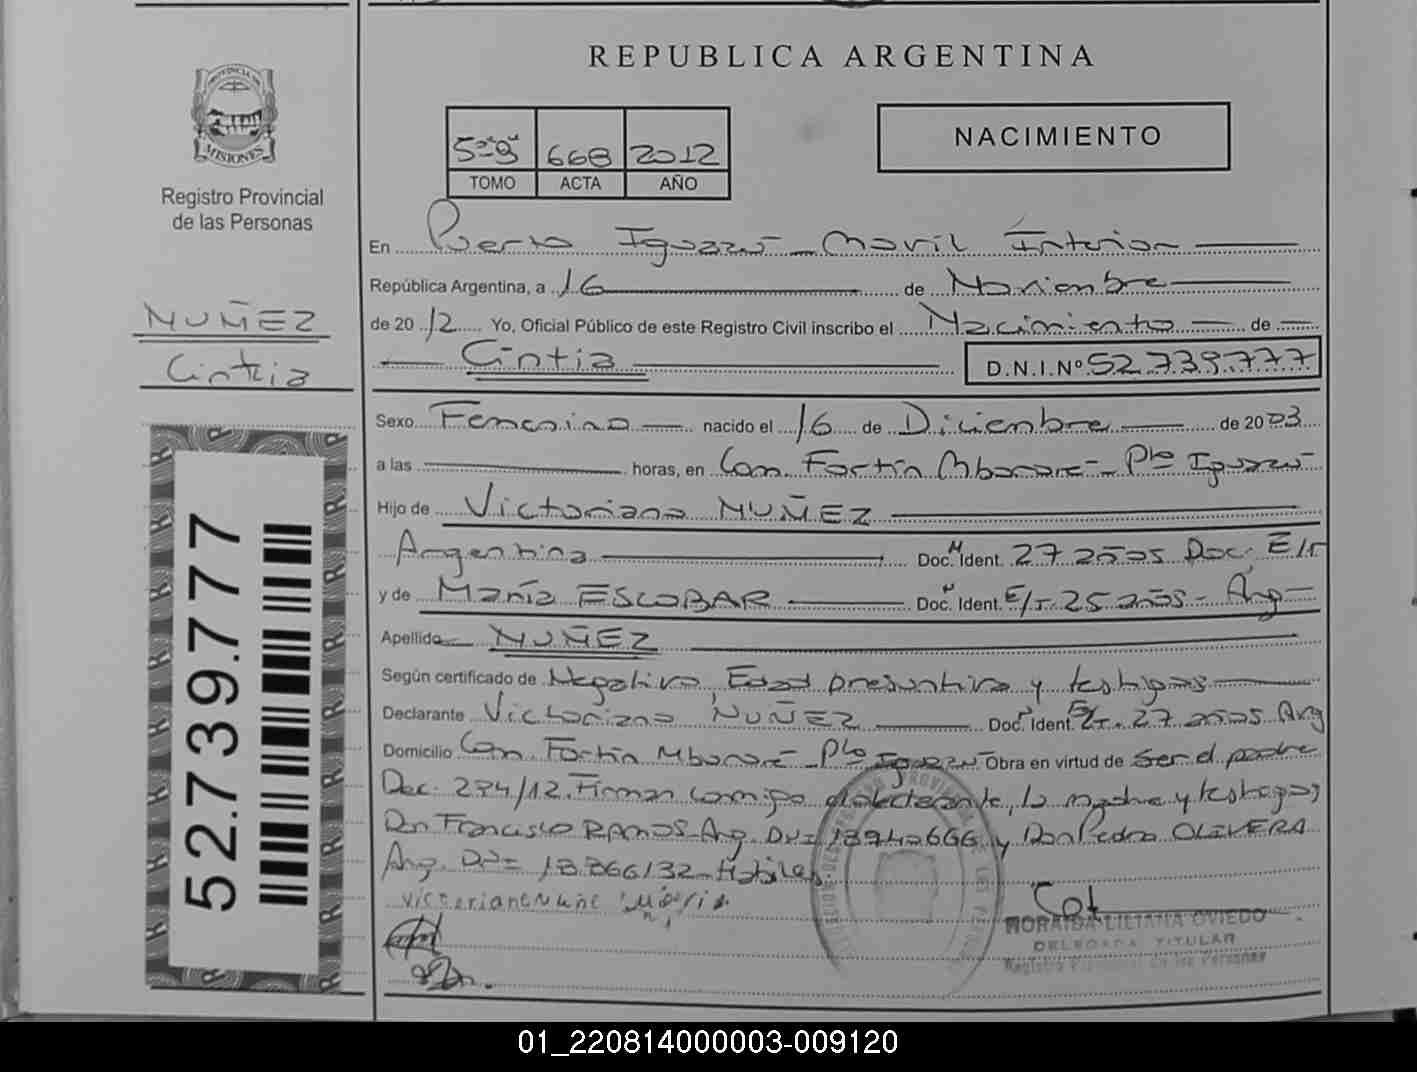 REPUBLICA ARGENTINA
PROVINCIA DE
MISIONES
Registro Provincial
de las Personas
5º 9º 668 2012
TOMO ACTA AÑO
NACIMIENTO
En Puerto Iguazú - Movil Interior
República Argentina, a 16 de Noviembre
de 2012 Yo, Oficial Público de este Registro Civil inscribo el Nacimiento de
Cintia D.N.I.Nº 52.739.777
NUÑEZ
Cintia
Sexo Femenino nacido el 16 de Diciembre de 2003
a las horas, en Com. Fortín Mbororé - Pto Iguazú
Hijo de Victoriano NUÑEZ
Argentina Doc. Ident. M 27 años Doc. E/T
y de María ESCOBAR Doc. Ident. E/T. 25 años - Arg
Apellido NUÑEZ
Según certificado de Negativo, Edad presuntiva y testigos
Declarante Victoriano NUÑEZ Doc. Ident. E/T. 27 años Arg
Domicilio Com. Fortín Mbororé - Pto Iguazú Obra en virtud de ser el padre
Dec. 274/12. Firman conmigo el declarante, la madre y testigos
Don Francisco RAMOS - Arg. DNI 18940666 y Don Pedro OLIVERA
Arg. DNI 18.866132 - Hábiles.
victoriano Nuñe María
NORAIDA LILIANA OVIEDO
DELEGADA TITULAR
Registro Provincial de las Personas
52.739.777
01_220814000003-009120